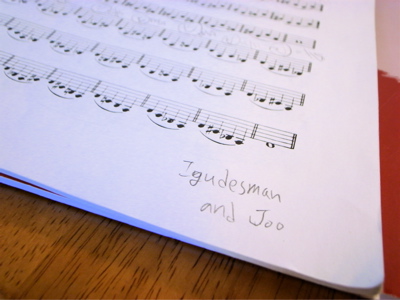 Igudesman
and Joo